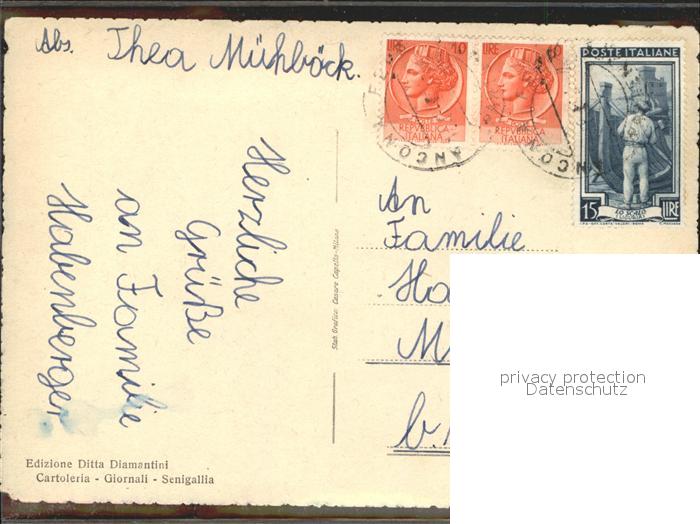 Abs. Thea Mühböck.
Herzliche
Grüße
an Familie
Habenberger
An
Familie
Ha
M
b.
LIRE 10
REPVBBLICA
ITALIANA
LIRE
REPVBBLICA
ITALIANA
POSTE ITALIANE
15 LIRE
ANCONA
Stab. Grafico Cesare Capello-Milano
Edizione Ditta Diamantini
Cartoleria - Giornali - Senigallia
privacy protection
Datenschutz